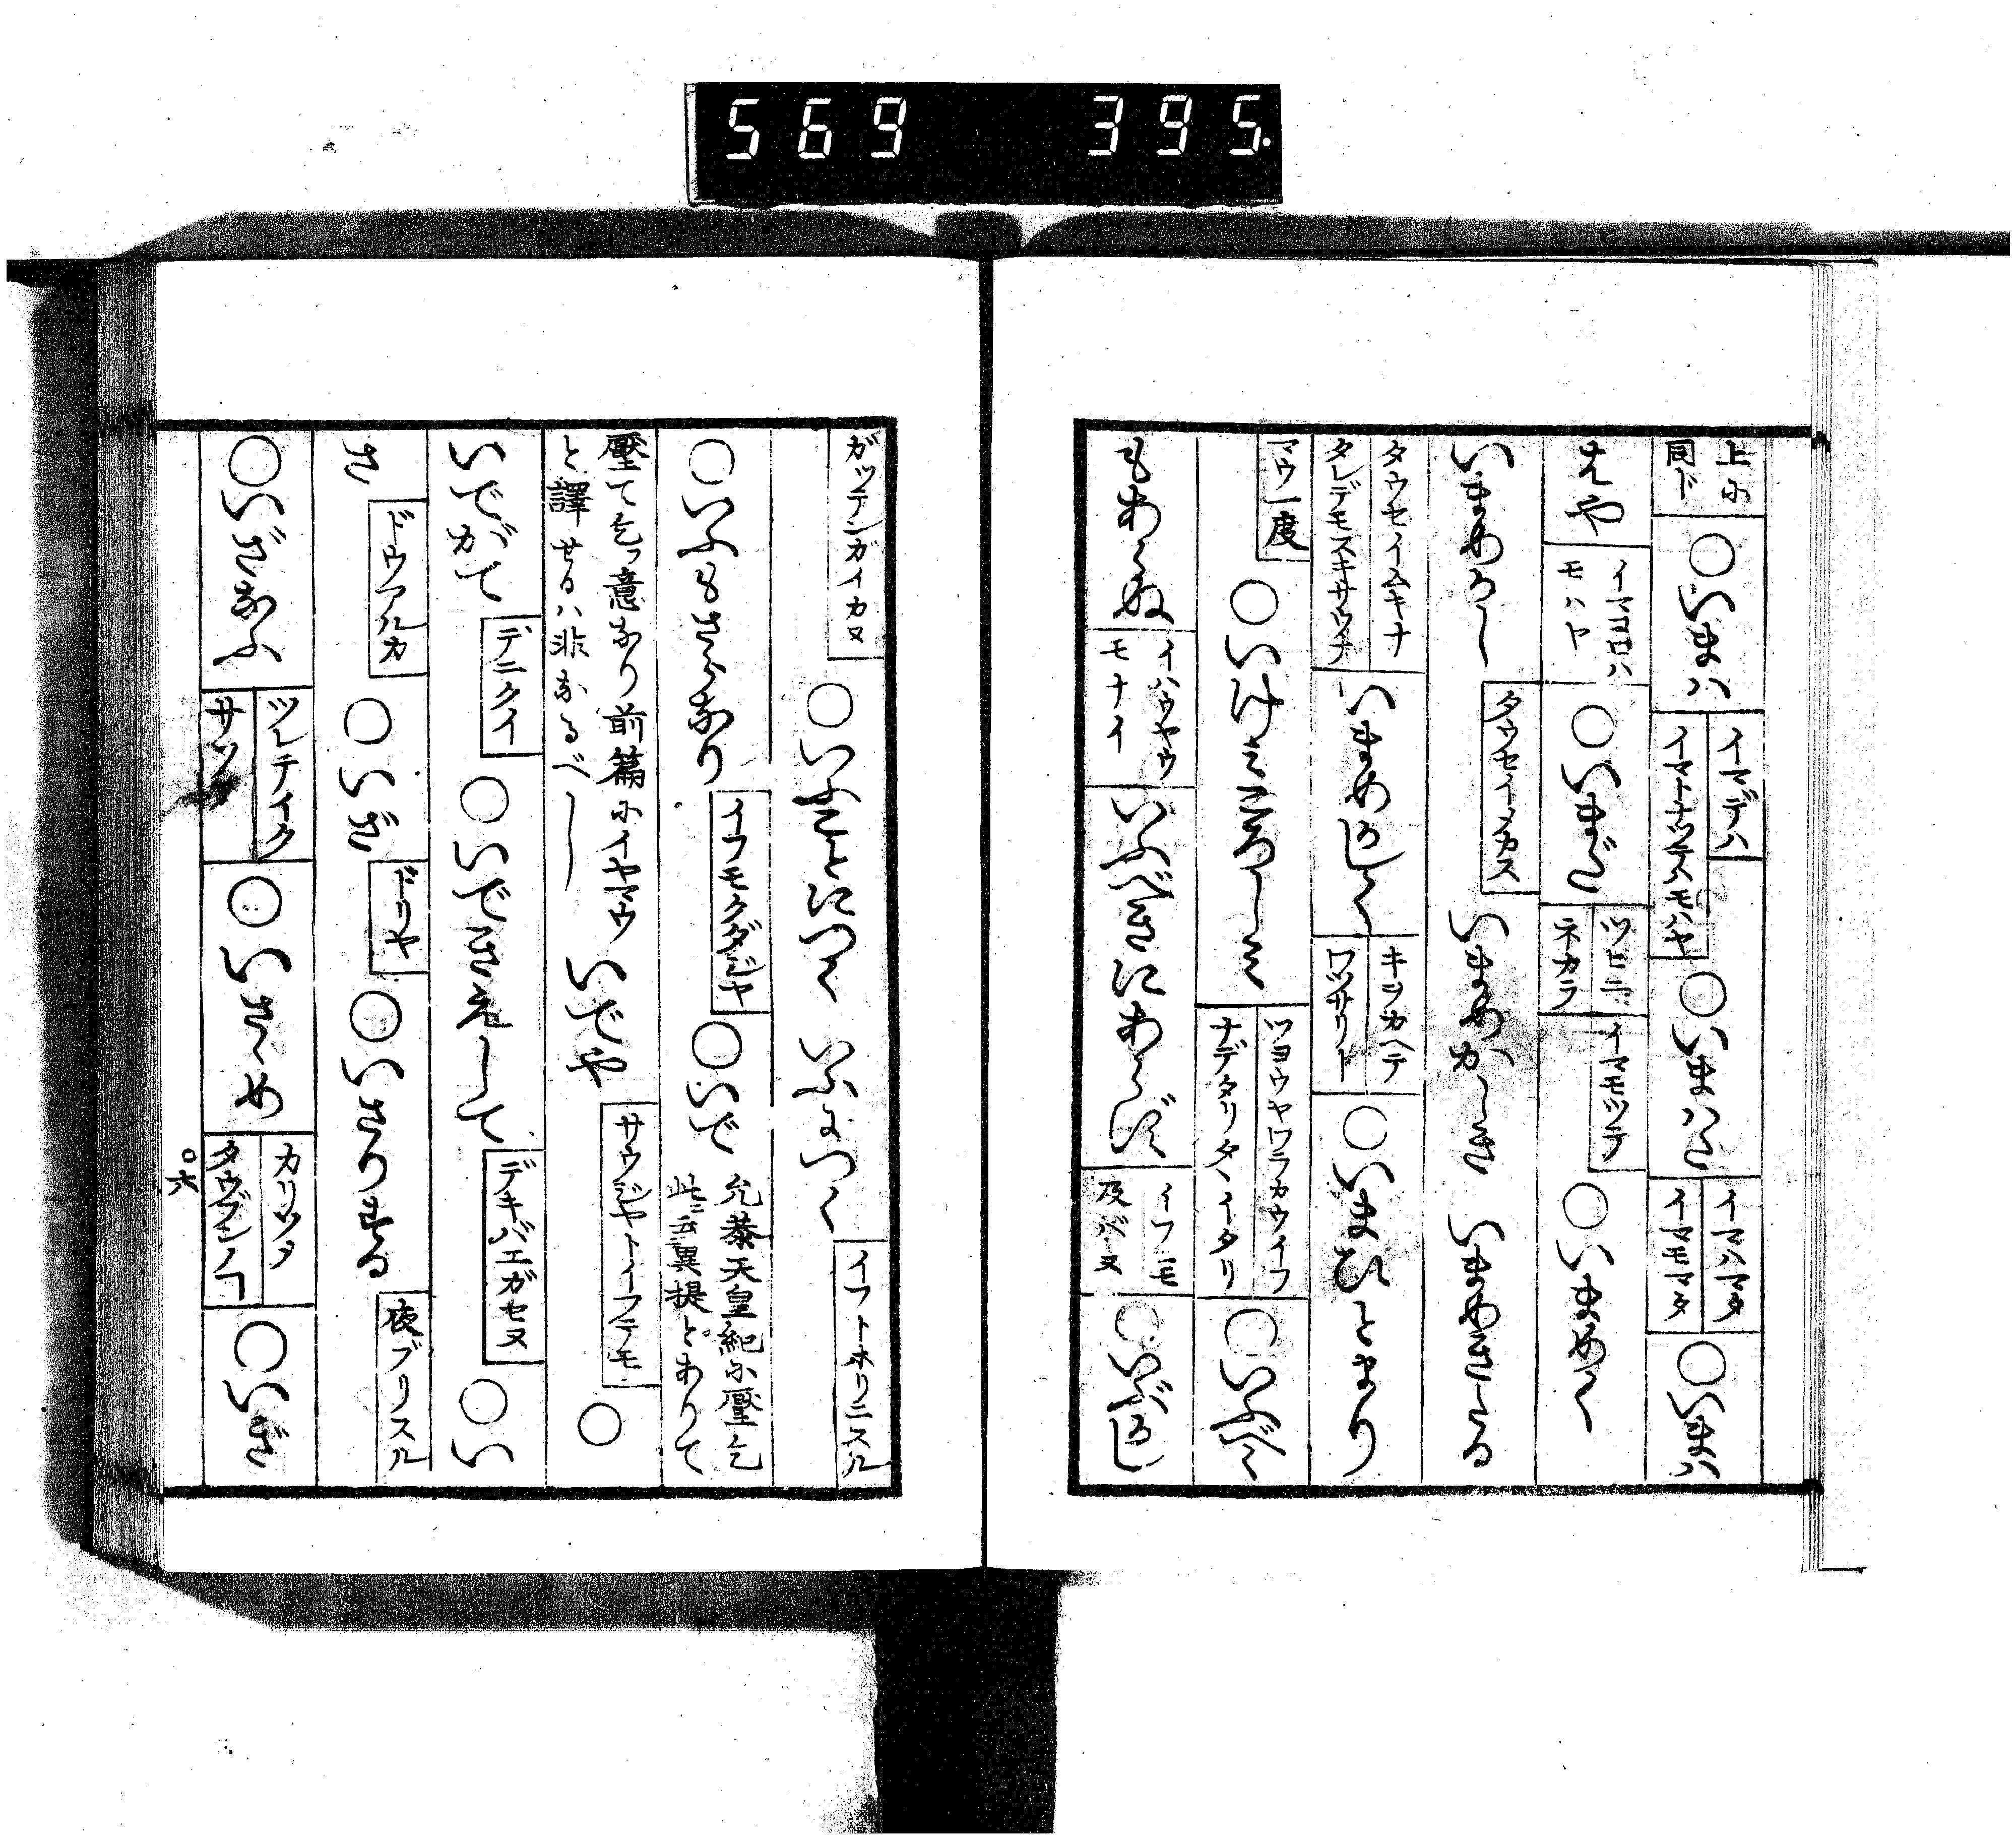 569 395.
上に同ド ○いまハ イマデハ イマトナツテハモハヤ ○いまハた イマハマタ イマモマタ ○いまハ
はや イマゴロハモハヤ ○いまだ ツヒニ ネカラ イマモツテ ○いまめく
いまめかし タウセイメカス いまめかしき いまめきたる
タウセイムキナ タレデモスキサウナ いまめかしく キヲカヘテ ワツサリト ○いまひとまり
マウ一度 ○いけみころしみ ツヨウヤワラカウイフ ナデタリタヽイタリ ○いふべく
もあらぬ イハウヤウモナイ いふべきにあらず イフモ及バヌ ○いぶかし
ガツテンガイカヌ ○いふことにつく いふにつく イフトホリニスル
○いふもさらなり イフモクダジヤ ○いで 允恭天皇紀に壓乞此云異提とありて
壓て乞つ意なり前篇にイヤマウと譯せるハ非なるべし いでや サウジヤトイフテモ ○
いでがて デニクイ ○いできえして デキバエガセヌ ○い
さ ドウアルカ ○いざ ドリヤ ○いさりする 夜ブリスル
○いざなふ ツレテイク サソフ ○いさゝめ カリソメ タウブンノコ ○いざ
六